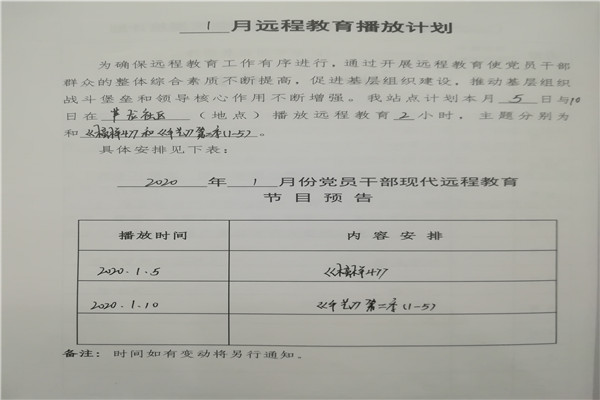 1 月远程教育播放计划
为确保远程教育工作有序进行，通过开展远程教育使党员干部
群众的整体综合素质不断提高，促进基层组织建设，推动基层组织
战斗堡垒和领导核心作用不断增强。我站点计划本月 5 日与10
日在 社区 （地点）播放远程教育 2 小时，主题分别为
和 和 第二季(1-5) 。
具体安排见下表：
2020 年 1 月份党员干部现代远程教育
节目预告
播放时间 内容安排
2020.1.5
2020.1.10 第二季(1-5)
备注：时间如有变动将另行通知。